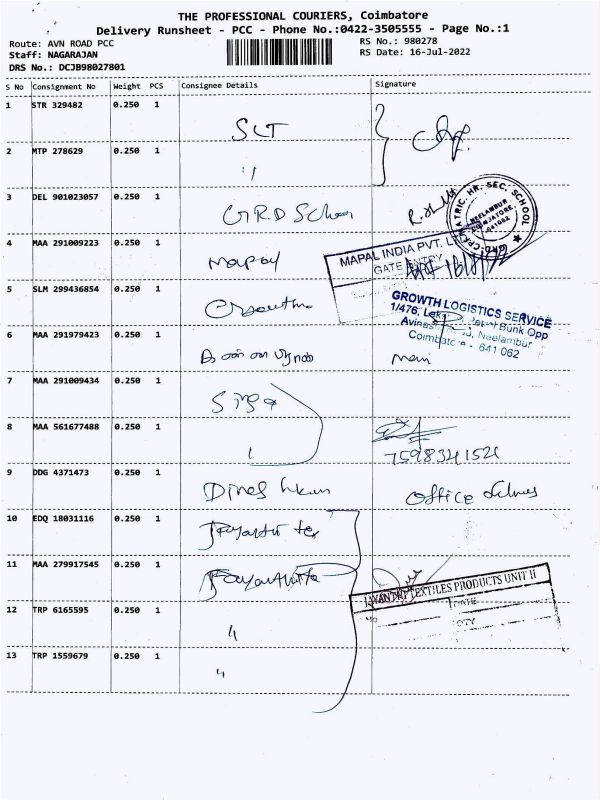 THE PROFESSIONAL COURIERS, Coimbatore
Delivery Runsheet - PCC - Phone No.:0422-3505555 - Page No.:1
Route: AVN ROAD PCC
RS No.: 980278
Staff: NAGARAJAN
RS Date: 16-Jul-2022
DRS No.: DCJB98027801
S No Consignment No Weight PCS Consignee Details Signature
1 STR 329482 0.250 1
SLT
2 MTP 278629 0.250 1
"
3 DEL 901023057 0.250 1
G.R.D School
HR. SEC. SCHOOL
NEELAMBUR
COIMBATORE
641062
4 MAA 291009223 0.250 1
Mapal
MAPAL INDIA PVT. L
GATE ENTRY
5 SLM 299436854 0.250 1
GROWTH LOGISTICS SERVICE
1/476, Bunk Opp
Neelambur
Coimbatore - 641 062
6 MAA 291979423 0.250 1
mani
7 MAA 291009434 0.250 1
8 MAA 561677488 0.250 1
7598341521
9 DDG 4371473 0.250 1
Dinesh kum
Office
10 EDQ 18031116 0.250 1
Jayanthi tex
11 MAA 279917545 0.250 1
JAYANTHI TEXTILES PRODUCTS UNIT II
DATE
NO
QTY
12 TRP 6165595 0.250 1
"
13 TRP 1559679 0.250 1
"